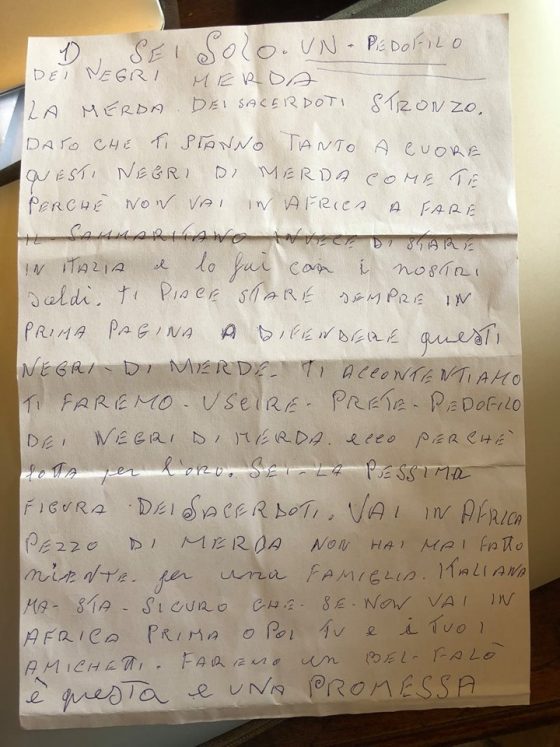 1) SEI SOLO. UN - PEDOFILO
DEI NEGRI MERDA
LA MERDA DEI SACERDOTI STRONZO.
DATO CHE TI STANNO TANTO A CUORE
QUESTI NEGRI DI MERDA COME TE
PERCHÈ NON VAI IN AFRICA A FARE
IL SAMMARITANO INVECE DI STARE
IN ITALIA e lo fai con i nostri
soldi. TI PIACE STARE SEMPRE IN
PRIMA PAGINA A DIFENDERE questi
NEGRI - DI MERDE. TI ACCONTENTIAMO
TI FAREMO - USCIRE - PRETE - PEDOFILO
DEI NEGRI DI MERDA. ecco PERCHÈ
lotta per loro. SEI - LA PESSIMA
FIGURA DEI SACERDOTI. VAI IN AFRICA
PEZZO DI MERDA NON HAI MAI FATTO
NIENTE. per una FAMIGLIA. ITALIANA
MA - STA - SICURO CHE - SE - NON VAI IN
AFRICA PRIMA O POI TU e i TUOI
AMICHETTI. FAREMO un BEL - FALÒ
È questa e UNA PROMESSA